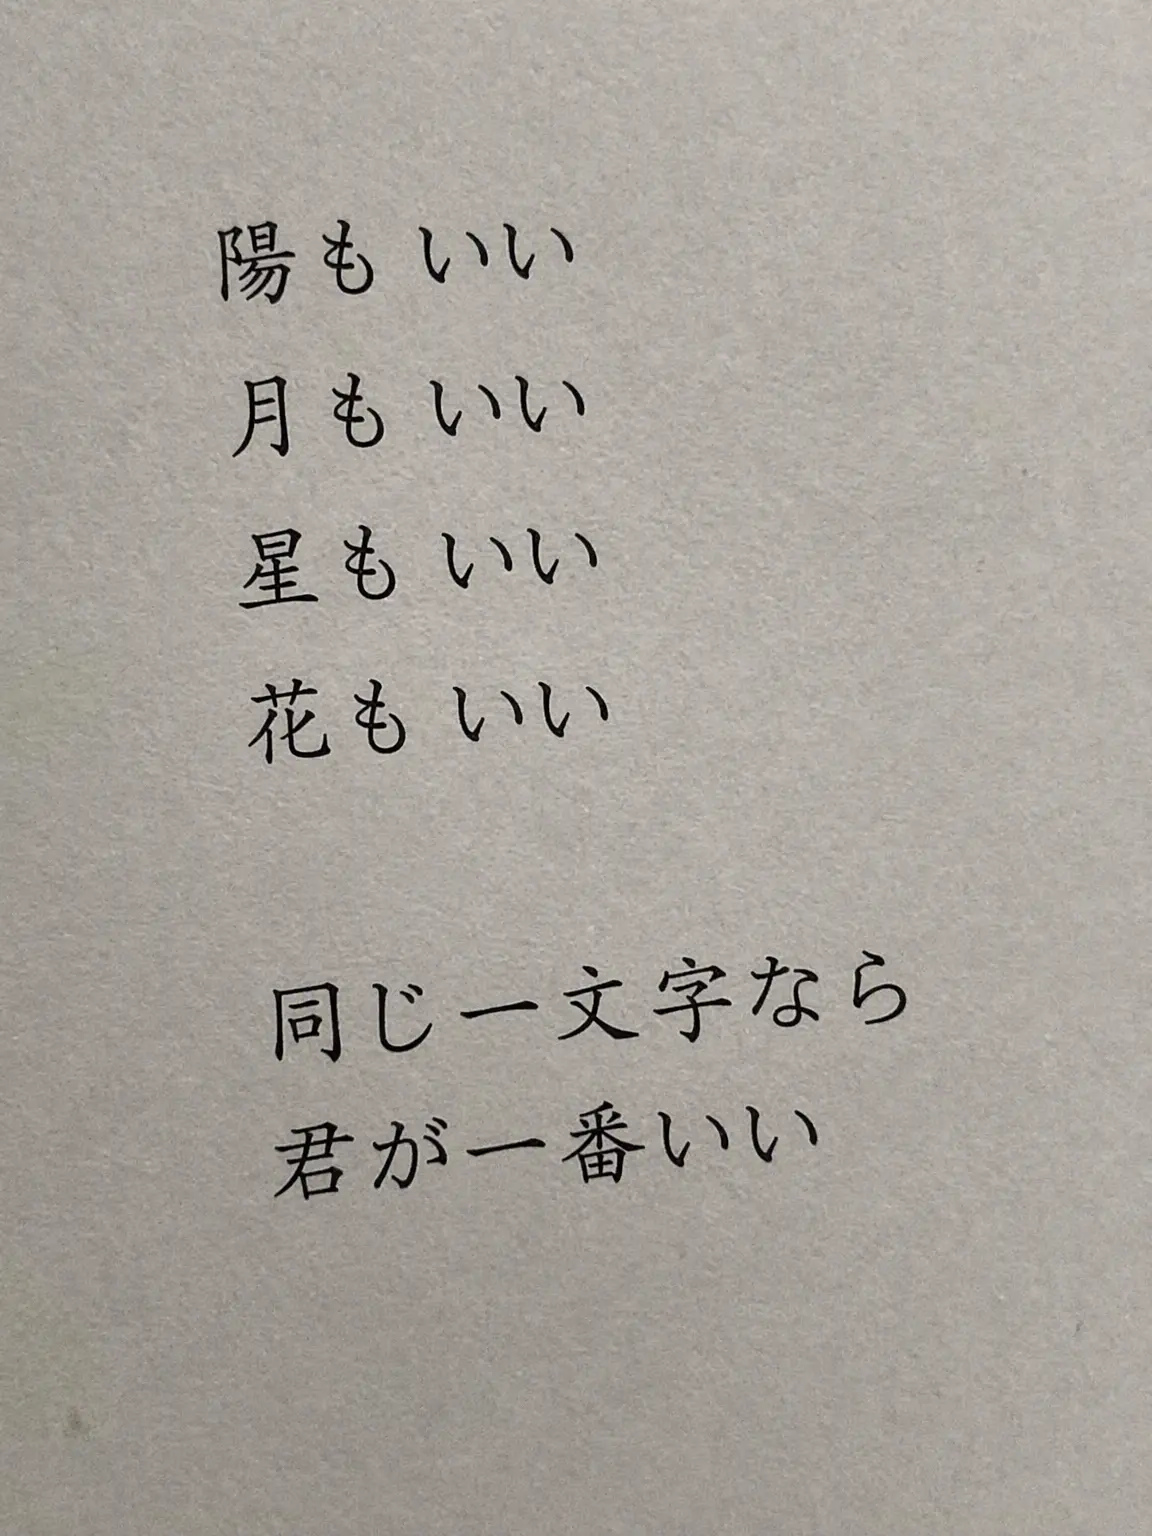 陽もいい
月もいい
星もいい
花もいい
同じ一文字なら
君が一番いい